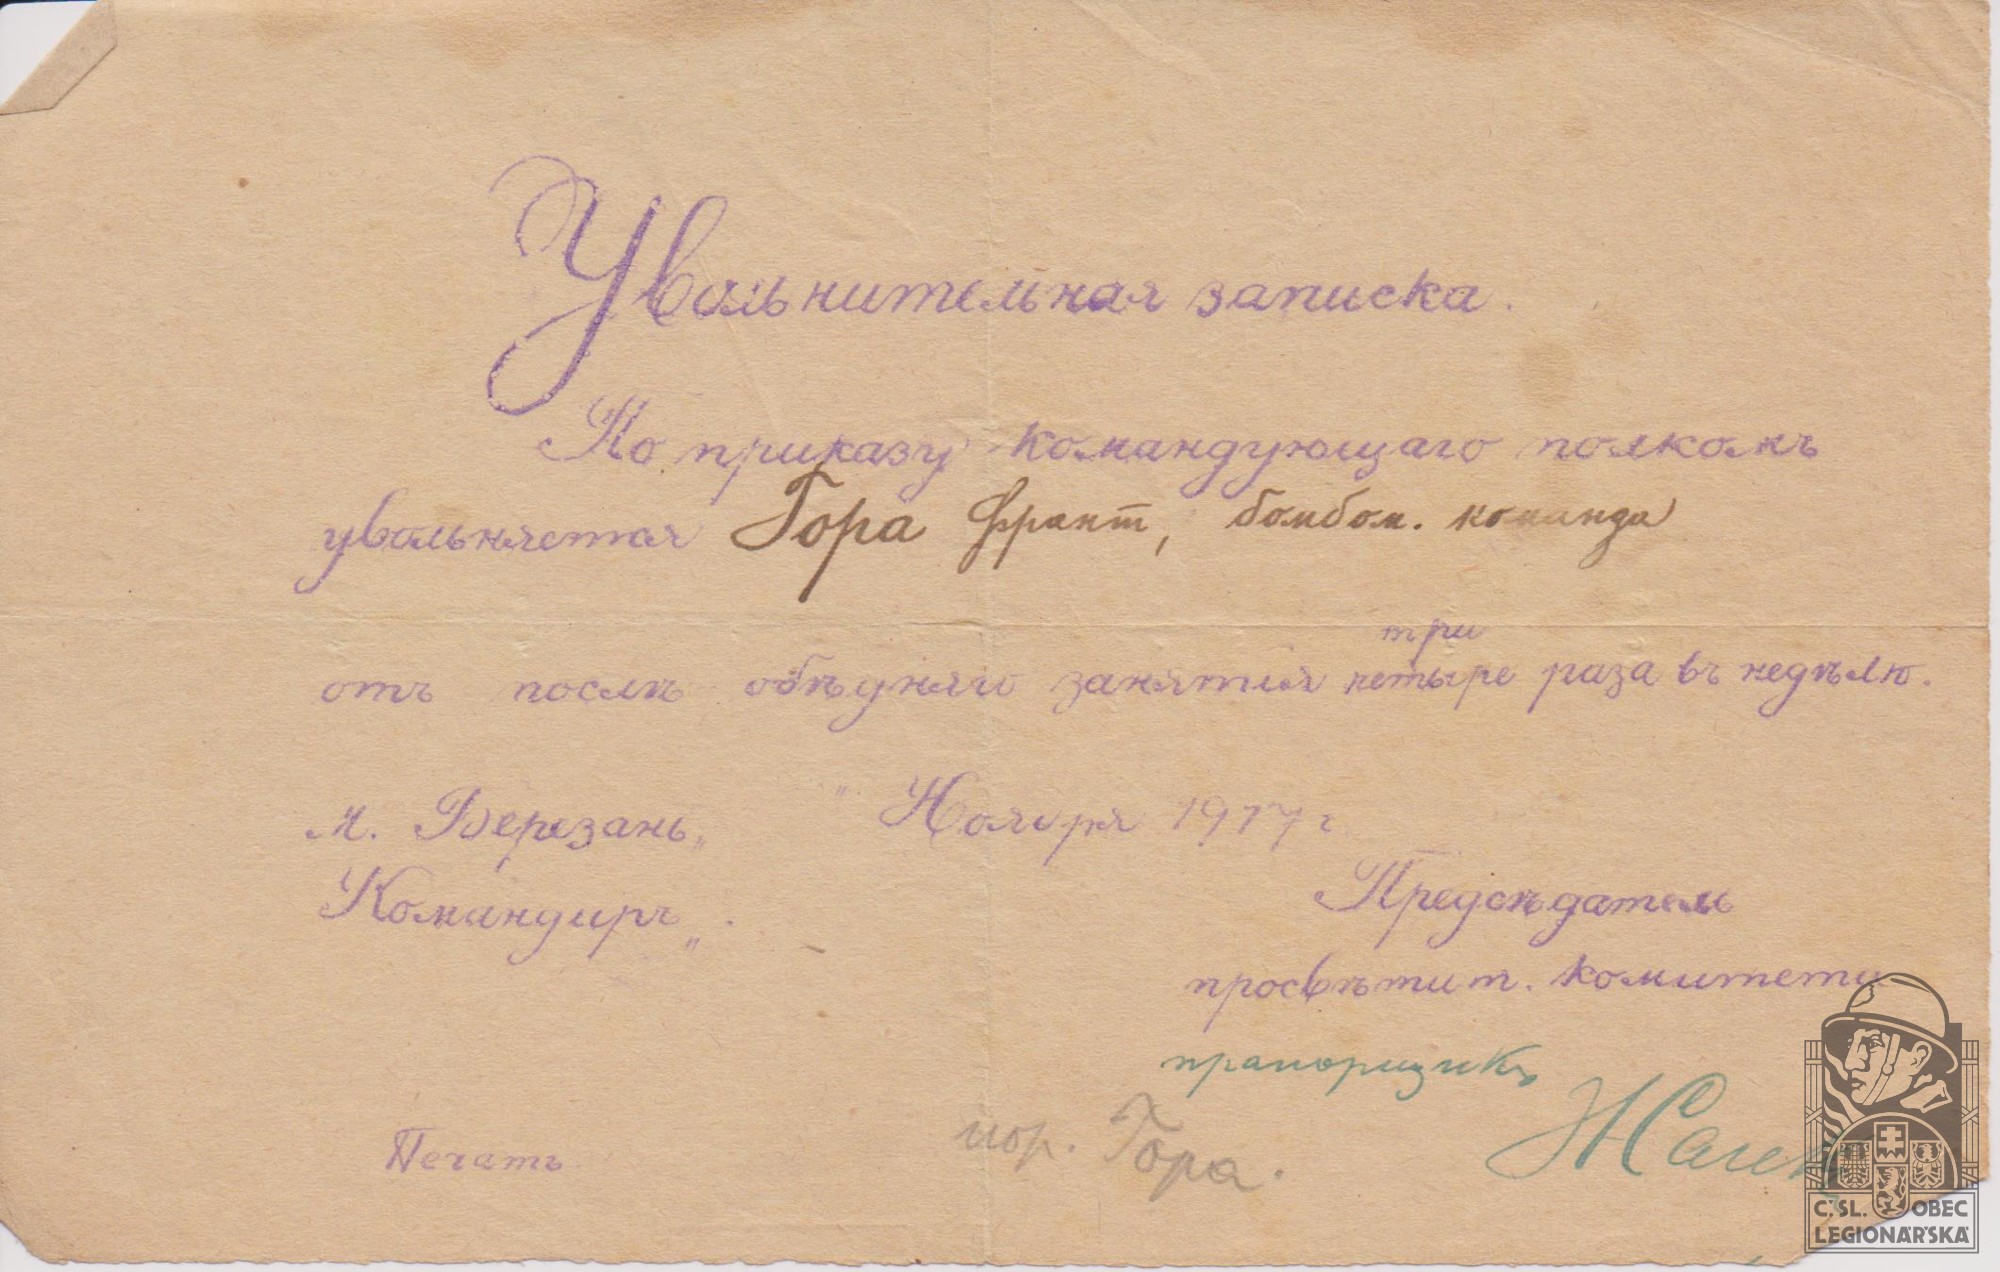 Увольнительная записка.
По приказу командующаго полкомъ
увольняется Гора Франт, бомбом. команда
три
отъ послѣ обѣдняго занятия четыре раза въ недѣлю.
м. Березань „ " Ноября 1917 г
Командиръ „ .
Предсѣдатель
просвѣтит. комитета
прапорщикъ
пор. Гора.
Печать
Č.SL. OBEC
LEGIONÁŘSKÁ